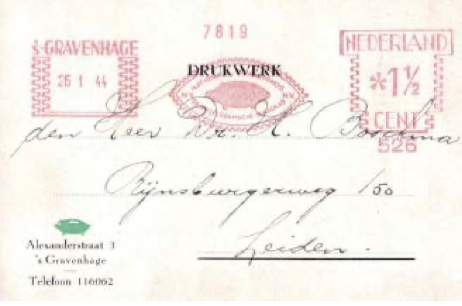 7819
's-GRAVENHAGE
26 1 44
DRUKWERK
NEDERLAND
*1½
CENT
526
den Heer Dr. H. Boschma
Rijnsburgerweg 150
Leiden.
Alexanderstraat 3
's Gravenhage
Telefoon 116062